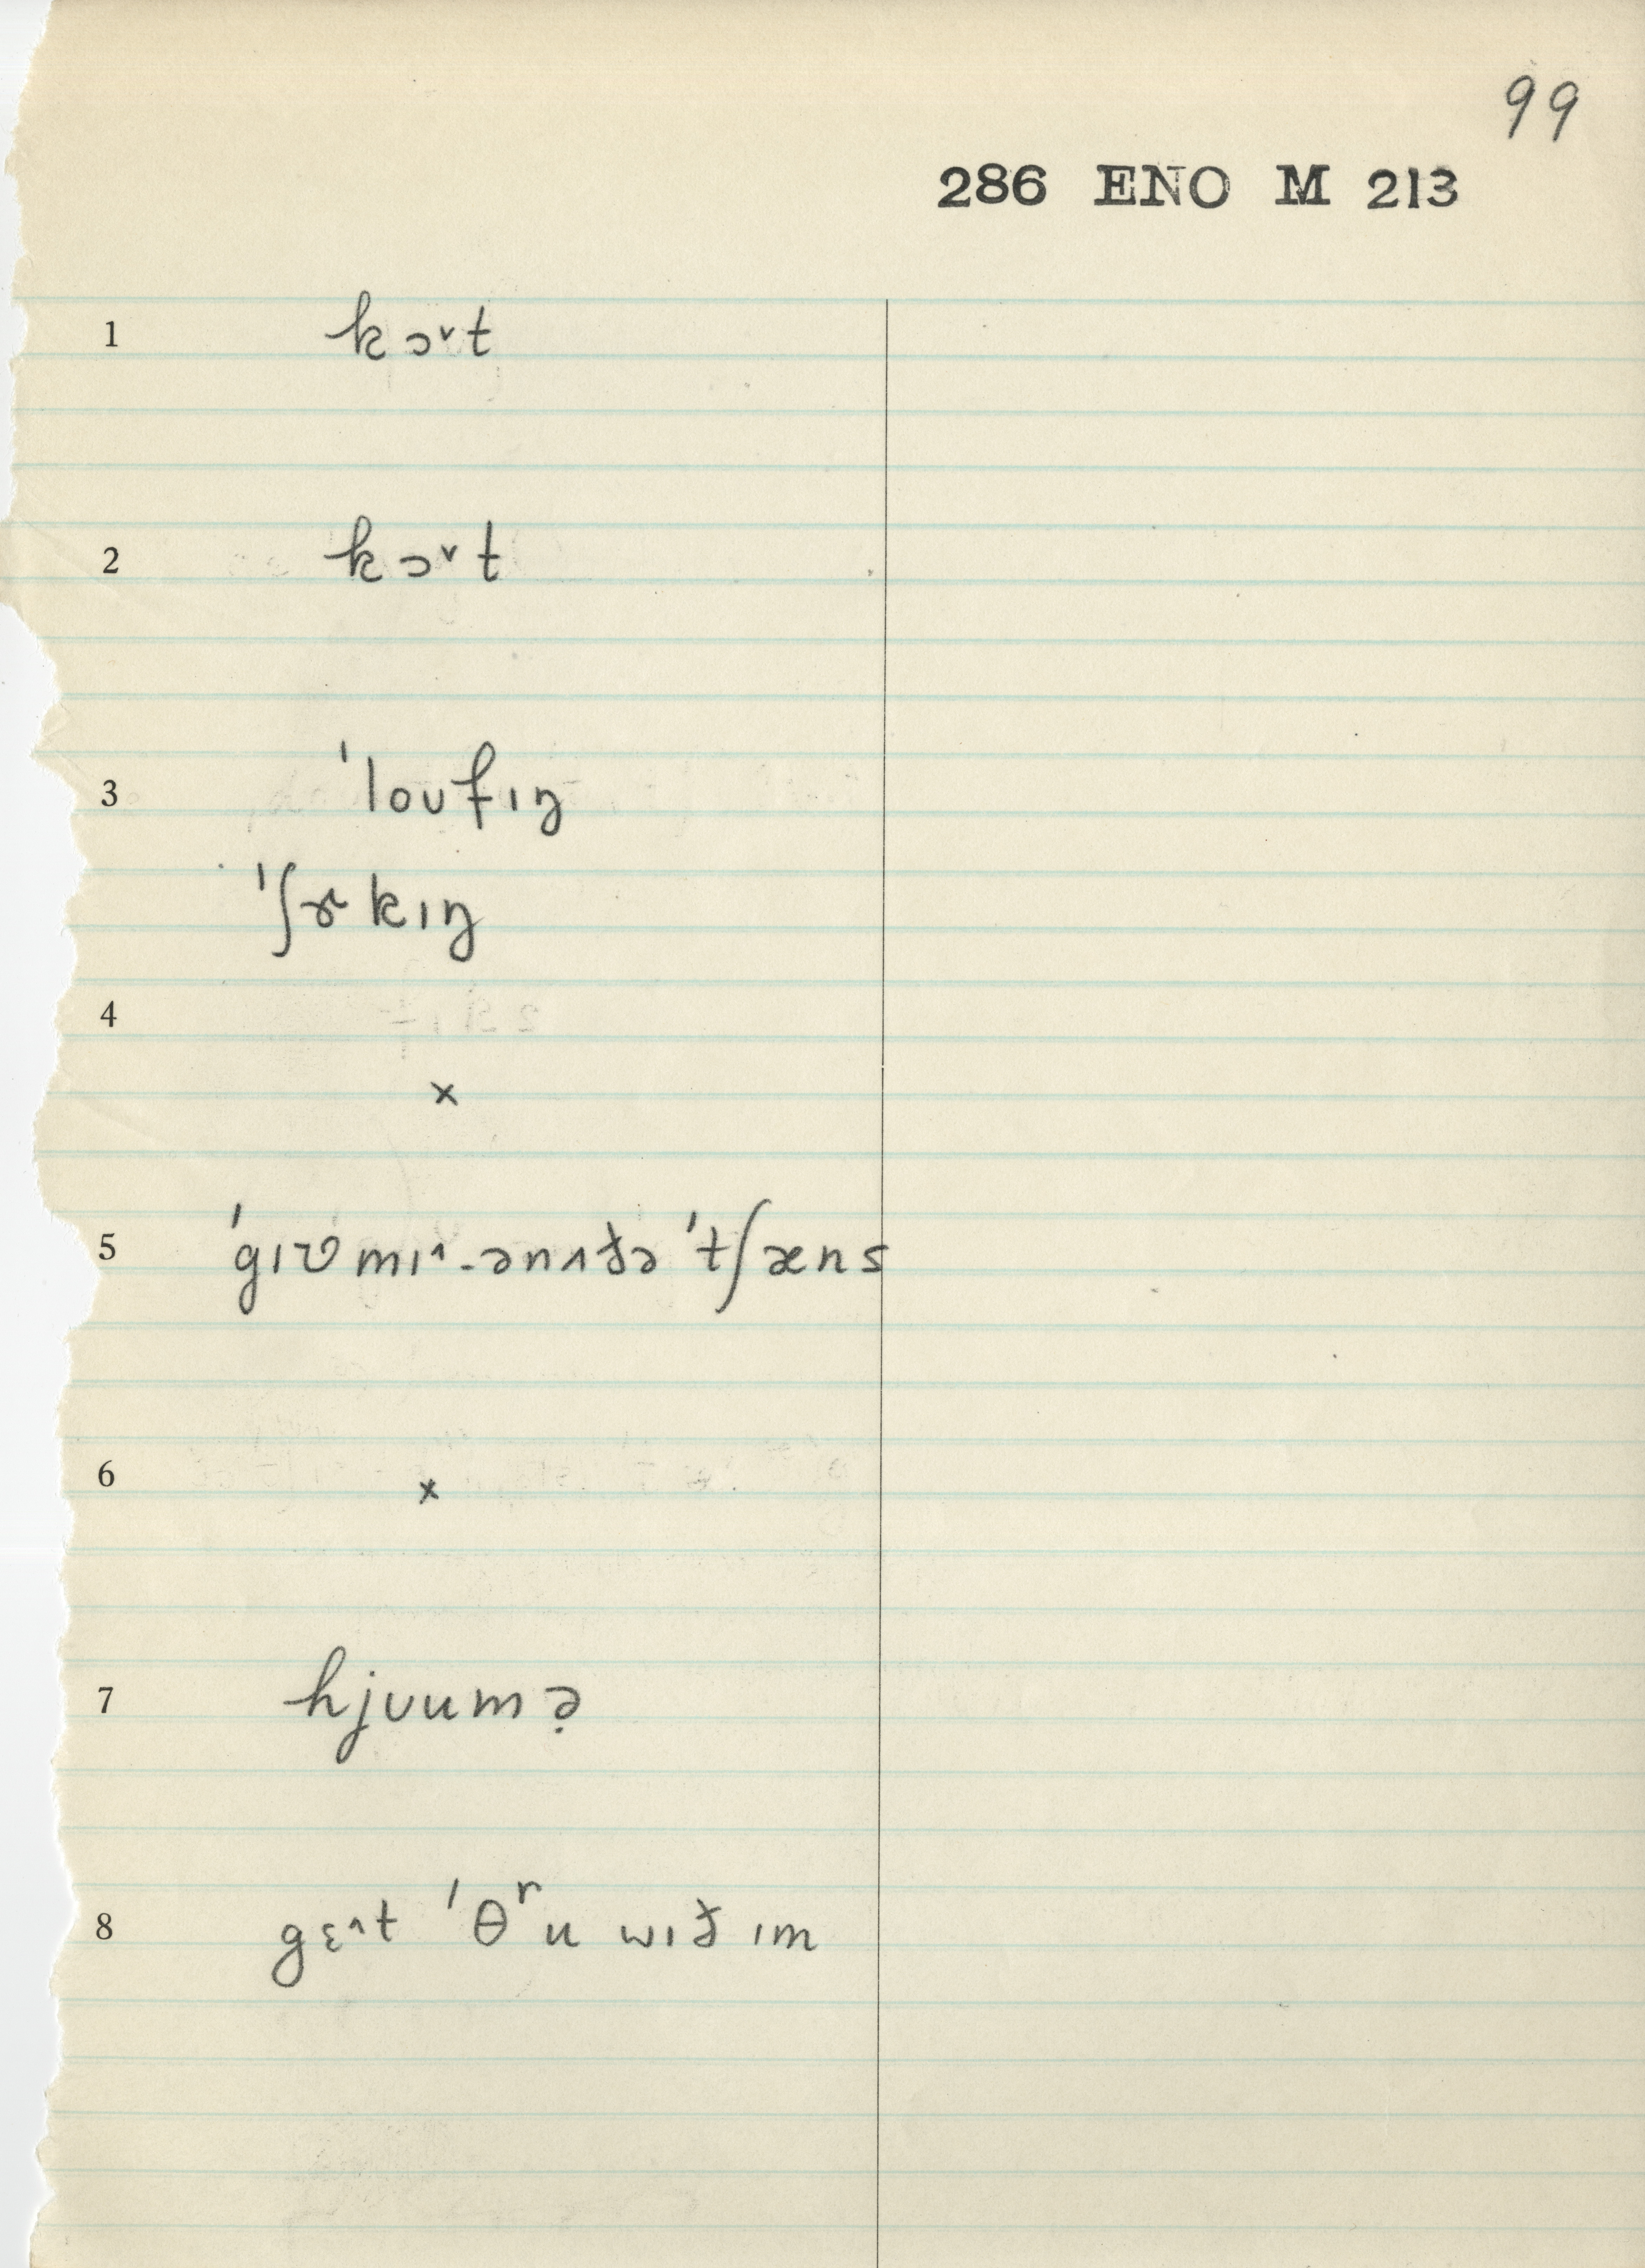 99
286 ENO M 213
1 kɔ˅t
2 kɔ˅t
3 ˈloʊfɪŋ
ˈʃɝkɪŋ
4
×
5 ˈgɪvmɪ˄-ənʌðə ˈtʃæns
6 ×
7 hjʊumə̣
8 gɛ˄t ˈθʳu wɪð ɪm